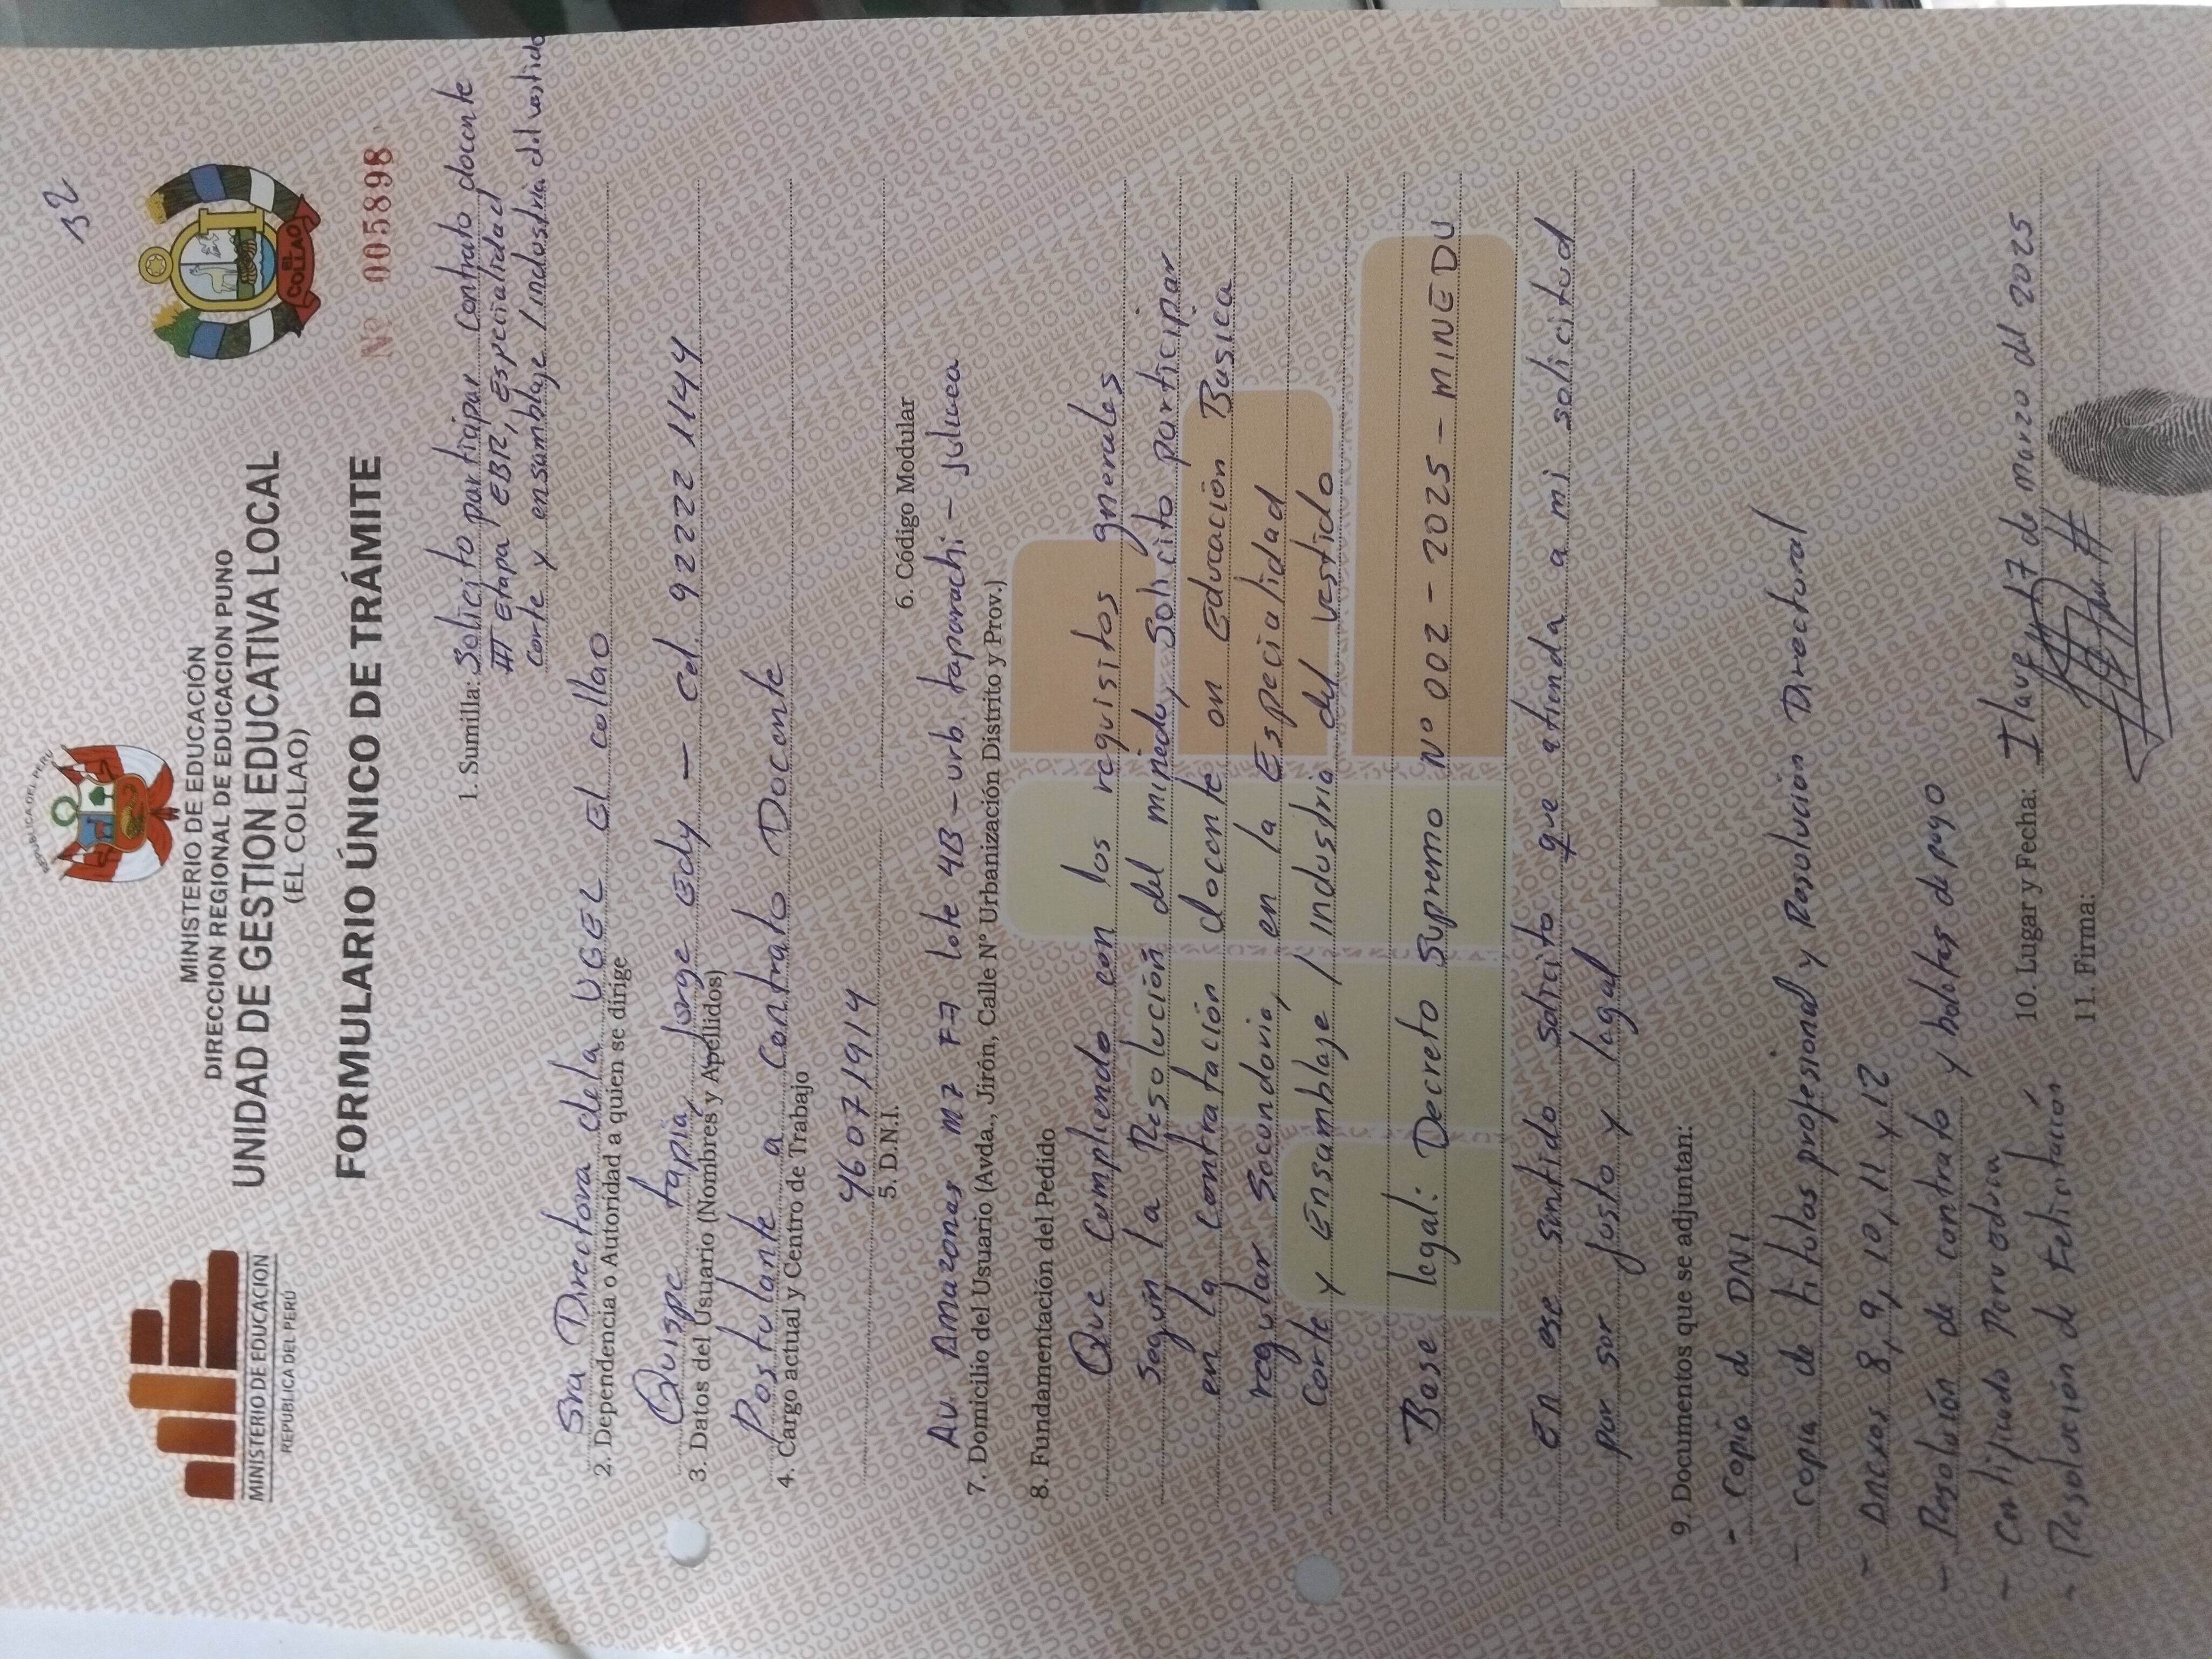 32
REPUBLICA DEL PERU
MINISTERIO DE EDUCACION
REPUBLICA DEL PERÚ
MINISTERIO DE EDUCACIÓN
DIRECCION REGIONAL DE EDUCACION PUNO
UNIDAD DE GESTION EDUCATIVA LOCAL
(EL COLLAO)
EL COLLAO
FORMULARIO ÚNICO DE TRÁMITE
Nº 005898
1. Sumilla: Solicito participar contrato docente
III Etapa EBR, Especialidad
corte y ensamblaje / industria del vestido
Sra Directora de la UGEL El collao
2. Dependencia o Autoridad a quien se dirige
Quispe tapia, Jorge Edy - Cel. 92222 1144
3. Datos del Usuario (Nombres y Apellidos)
Postulante a Contrato Docente
4. Cargo actual y Centro de Trabajo
46071914
5. D.N.I.
6. Código Modular
Av. Amazonas MZ F7 lote 4B - urb. taparachi - Juliaca
7. Domicilio del Usuario (Avda., Jirón, Calle N° Urbanización Distrito y Prov.)
8. Fundamentación del Pedido
Que Cumpliendo con los requisitos generales
según la Resolución del minedu, Solicito participar
en la contratación docente en Educación Basica
regular Secundaria, en la Especialidad
Corte y Ensamblaje / industria del vestido
Base legal: Decreto Supremo Nº 002 - 2025 - MINEDU
En ese sentido solicito que atienda a mi solicitud
por ser justo y legal
9. Documentos que se adjuntan:
- Copia de DNI
- copia de titulos profesional y Resolucion Directoral
- Anexos 8, 9, 10, 11 y 12
- Resolución de contrato y boletas de pago
- Certificado Perueduca
- Resolución de felicitación
10. Lugar y Fecha: Ilave 17 de marzo del 2025
11. Firma: